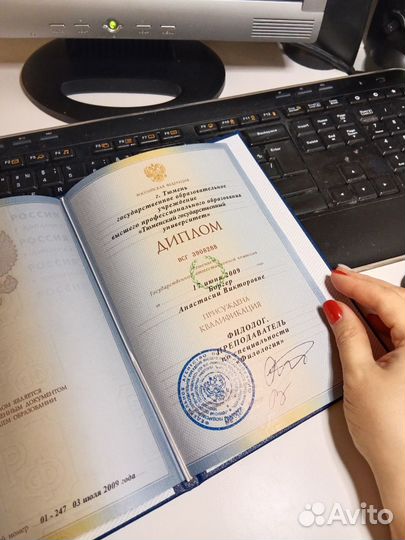 РОССИЙСКАЯ ФЕДЕРАЦИЯ
г. Тюмень
государственное образовательное
учреждение
высшего профессионального образования
«Тюменский государственный
университет»
ДИПЛОМ
ВСГ 3908288
Государственной аттестационной комиссии
17 июня 2009
Боргер
Анастасии Викторовне
ПРИСУЖДЕНА
КВАЛИФИКАЦИЯ
ФИЛОЛОГ.
ПРЕПОДАВАТЕЛЬ
по специальности
«Филология»
ДОКУМЕНТОМ
ОБРАЗОВАНИИ
номер 01-247 03 июля 2009
Avito